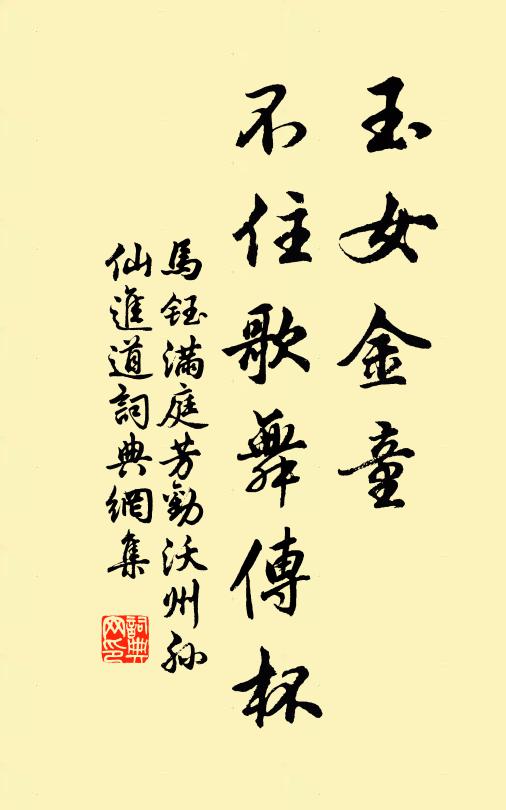 玉女金童
不住歌舞傳杯
馬鈺滿庭芳勸沃州孙
仙進道詞典網集
詞典网印